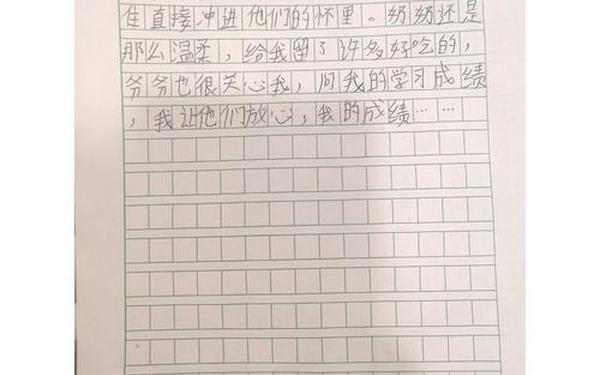 住直接冲进他们的怀里。奶奶还是
那么温柔，给我留了许多好吃的，
爷爷也很关心我，问我的学习成绩
，我让他们放心，我的成绩……